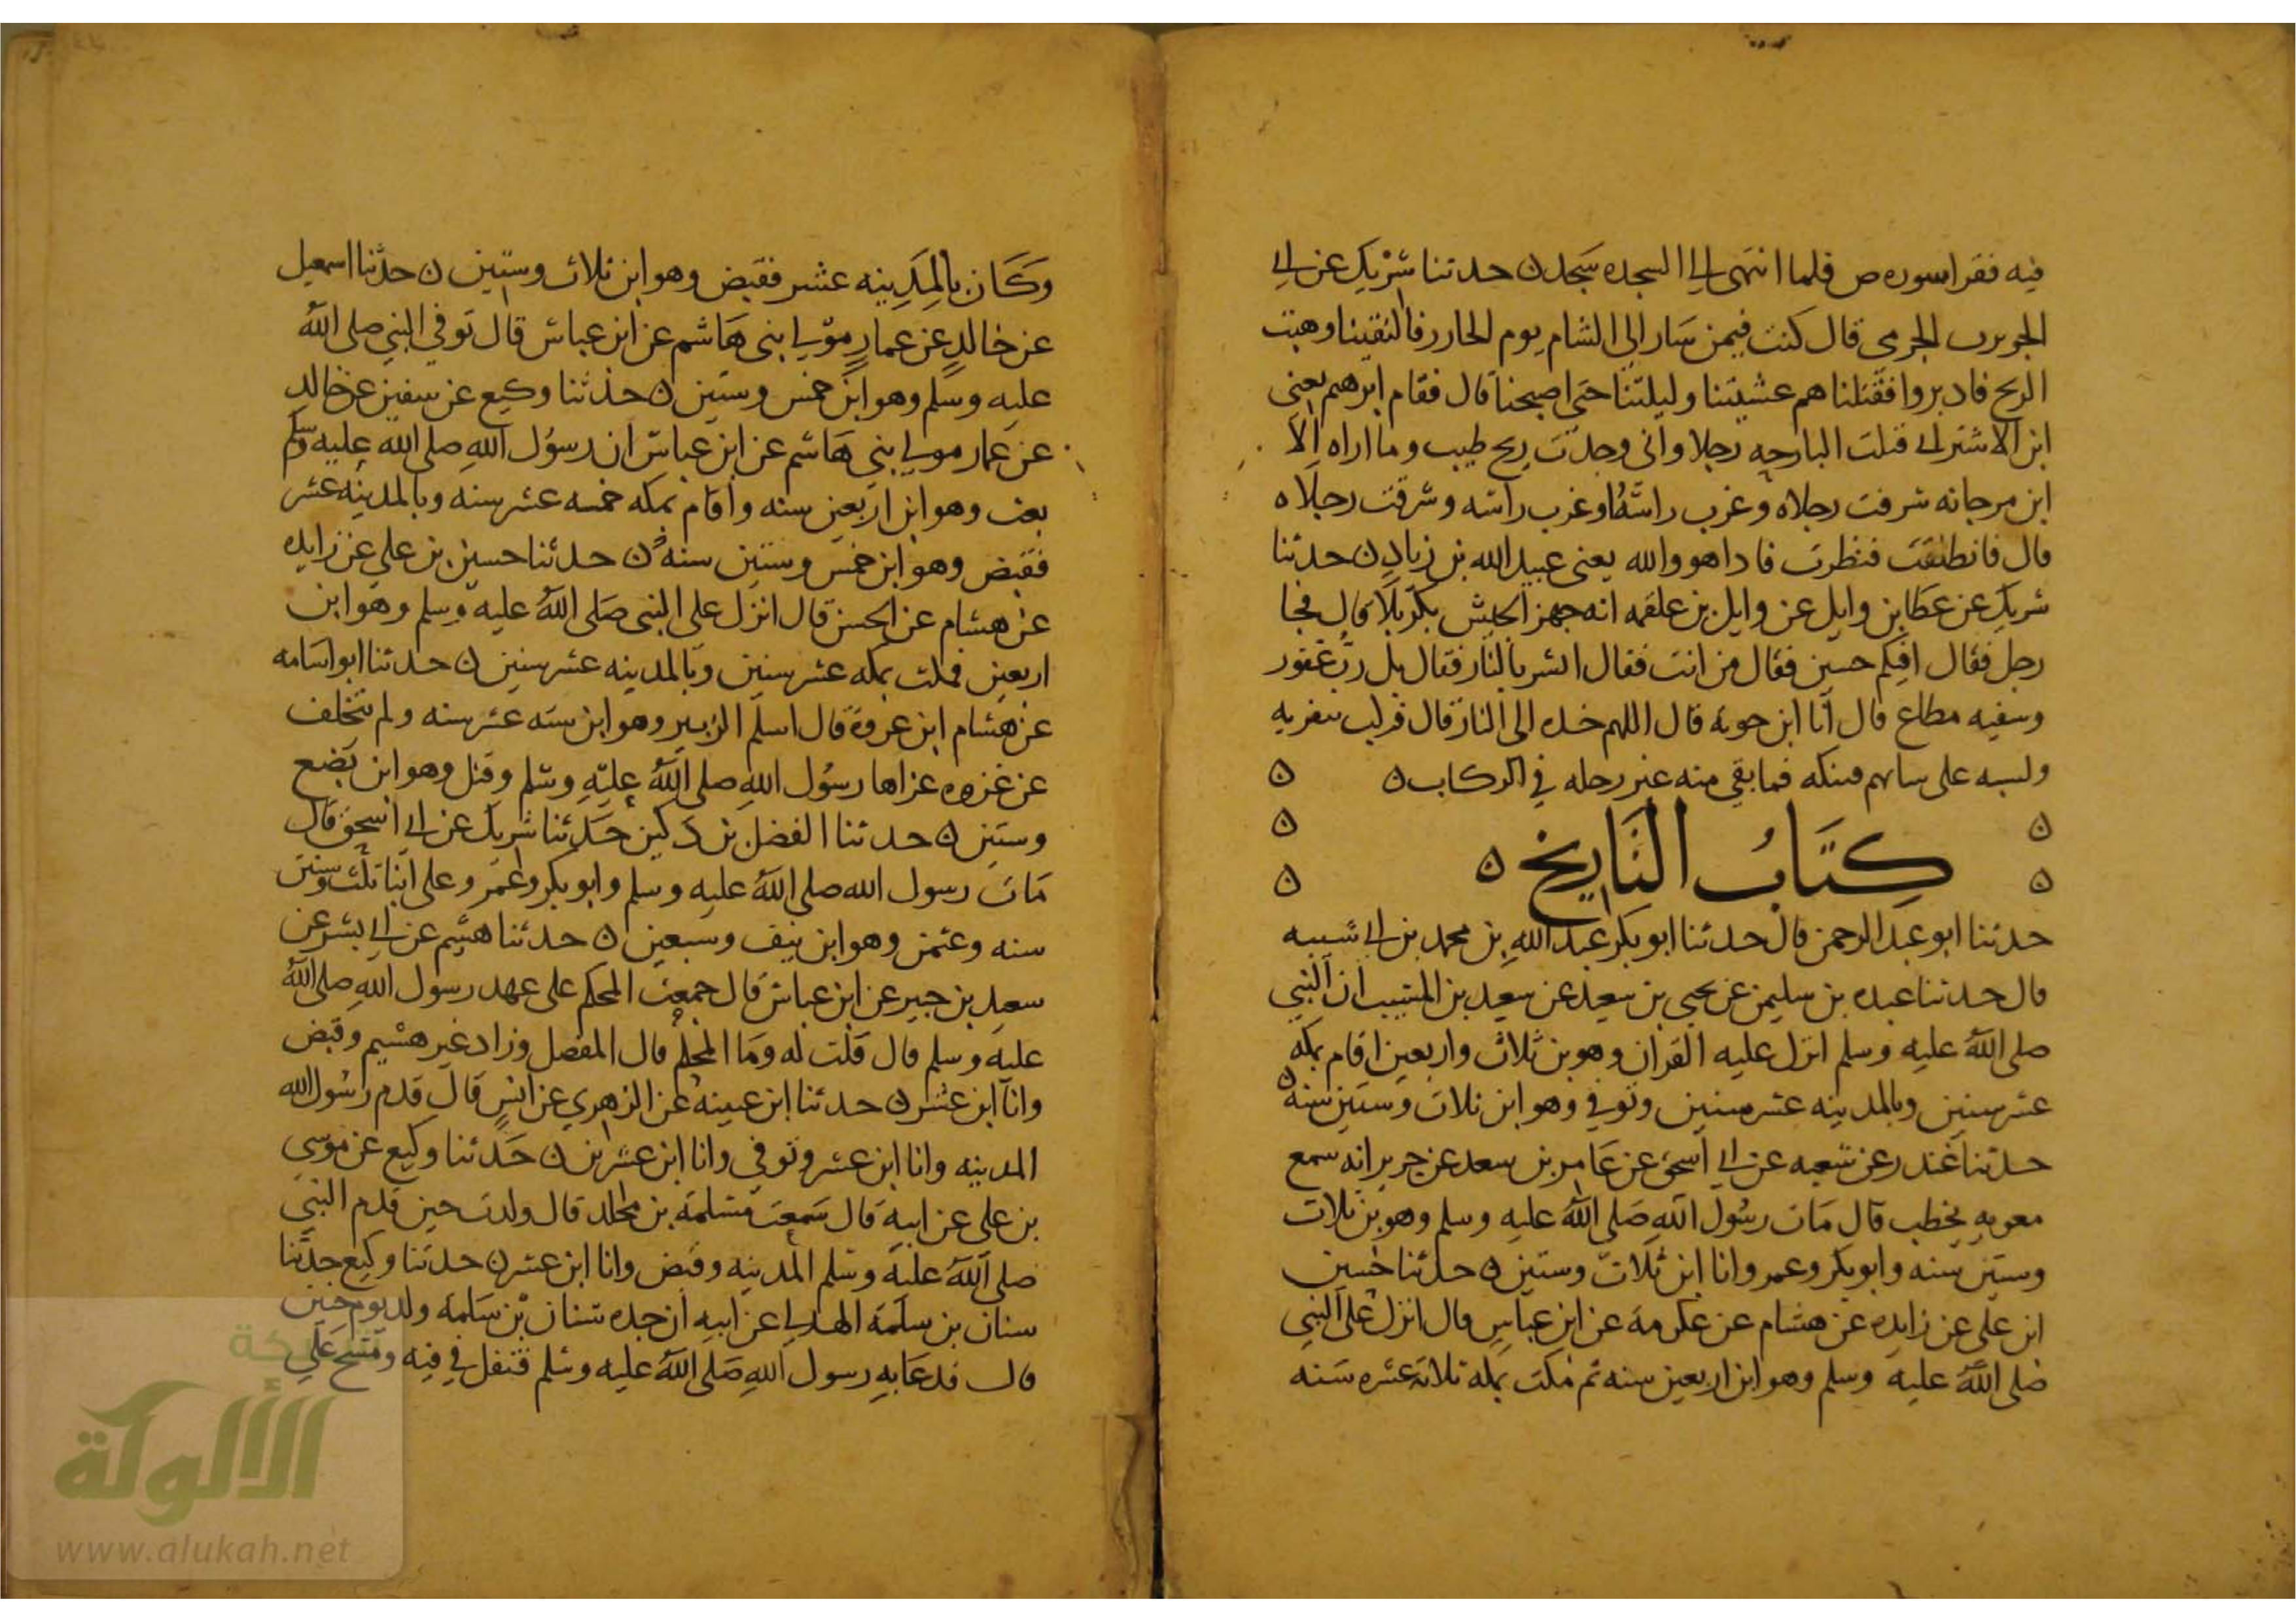 فيه فقرا سوره ص فلما انتهى الى السجده سجد ن حدثنا شريك عن ابي
الجويره الجرمي قال كنت فيمن سار الى الشام يوم الخازر فالتقينا وهبت
الريح فادبروا فقتلناهم عشيتنا وليلتنا حتى اصبحنا قال فقام ابرهيم يعني
ابن الاشتر اني قتلت البارحه رجلا واني وجدت ريح طيب وما اراه الا
ابن مرجانه شرقت رجلاه وغرب راسه او غرب راسه وشرقت رجلاه
قال فانطلقت فنظرت فاذا هو والله يعني عبيد الله بن زياد ن حدثنا
شريك عن عطا بن وايل عن وايل بن علقمه انه جهز الجيش بكربلا قال فجا
رجل فقال افيكم حسين فقال من انت فقال ابشر بالنار فقال بل رب غفور
وشفيع مطاع قال انا ابن حويه قال اللهم خذه الى النار قال
فما بقي منه غير رجله في الركاب ن
كتاب التاريخ ن
حدثنا ابو عبد الرحمن قال حدثنا ابو بكر عبد الله بن محمد بن ابي شيبه
قال حدثنا عبده بن سليمن عن يحيى بن سعيد عن سعيد بن المسيب ان النبي
صلى الله عليه وسلم انزل عليه القران وهو بن ثلاث واربعين اقام بمكه
عشر سنين وبالمدينه عشر سنين وتوفي وهو ابن ثلاث وستين سنه ن
حدثنا غندر عن شعبه عن ابي اسحق عن عامر بن سعد عن جرير انه سمع
معويه يخطب قال مات رسول الله صلى الله عليه وسلم وهو بن ثلاث
وستين سنه وابو بكر وعمر وانا ابن ثلاث وستين ن حدثنا حسين
ابن علي عن زايده عن هشام عن عكرمه عن ابن عباس قال انزل على النبي
صلى الله عليه وسلم وهو ابن اربعين سنه ثم مكث بمكه ثلاثه عشره سنه
وكان بالمدينه عشر فقبض وهو ابن ثلاث وستين ن حدثنا اسمعيل
عن خالد عن عمار مولى بني هاشم عن ابن عباس قال توفي النبي صلى الله
عليه وسلم وهو ابن خمس وستين ن حدثنا وكيع عن سفين عن خالد
عن عمار مولى بني هاشم عن ابن عباس ان رسول الله صلى الله عليه وسلم
بعث وهو ابن اربعين سنه واقام بمكه خمسه عشر سنه وبالمدينه عشر
فقبض وهو ابن خمس وستين سنه ن حدثنا حسين بن علي عن زايده
عن هشام عن الحسن قال انزل على النبي صلى الله عليه وسلم وهو ابن
اربعين فمكث بمكه عشر سنين وبالمدينه عشر سنين ن حدثنا ابو اسامه
عن هشام ابن عروة قال اسلم الزبير وهو ابن سته عشر سنه ولم يتخلف
عن غزوه غزاها رسول الله صلى الله عليه وسلم وقتل وهو ابن بضع
وستين ن حدثنا الفضل بن دكين حدثنا شريك عن ابي اسحق قال
مات رسول الله صلى الله عليه وسلم وابو بكر وعمر وعلي ابنا ثلث وستين
سنه وعثمن وهو ابن نيف وسبعين ن حدثنا هشيم عن ابي بشر عن
سعيد بن جبير عن ابن عباس قال جمعت المحكم على عهد رسول الله صلى الله
عليه وسلم قال قلت له وما المحكم قال المفصل وزاد غير هشيم وقبض
وانا ابن عشر ن حدثنا ابن عيينه عن الزهري عن انس قال قدم رسول الله
المدينه وانا ابن عشر وتوفي وانا ابن عشرين ن حدثنا وكيع عن موسى
بن علي عن ابيه قال سمعت مسلمه بن مخلد قال ولدت حين قدم النبي
صلى الله عليه وسلم المدينه وقبض وانا ابن عشر ن حدثنا وكيع حدثنا
سنان بن سلمة الهذلي عن ابيه ان جده سنان بن سلمة ولد يوم حنين
قال فدعا به رسول الله صلى الله عليه وسلم فتفل في فيه ومسح على
شبكة
الألوكة
www.alukah.net